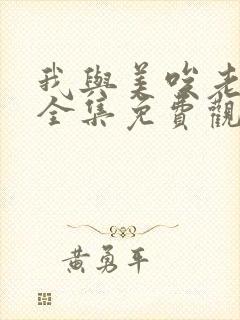 我與美啖老
全集免費觀
黃勇平